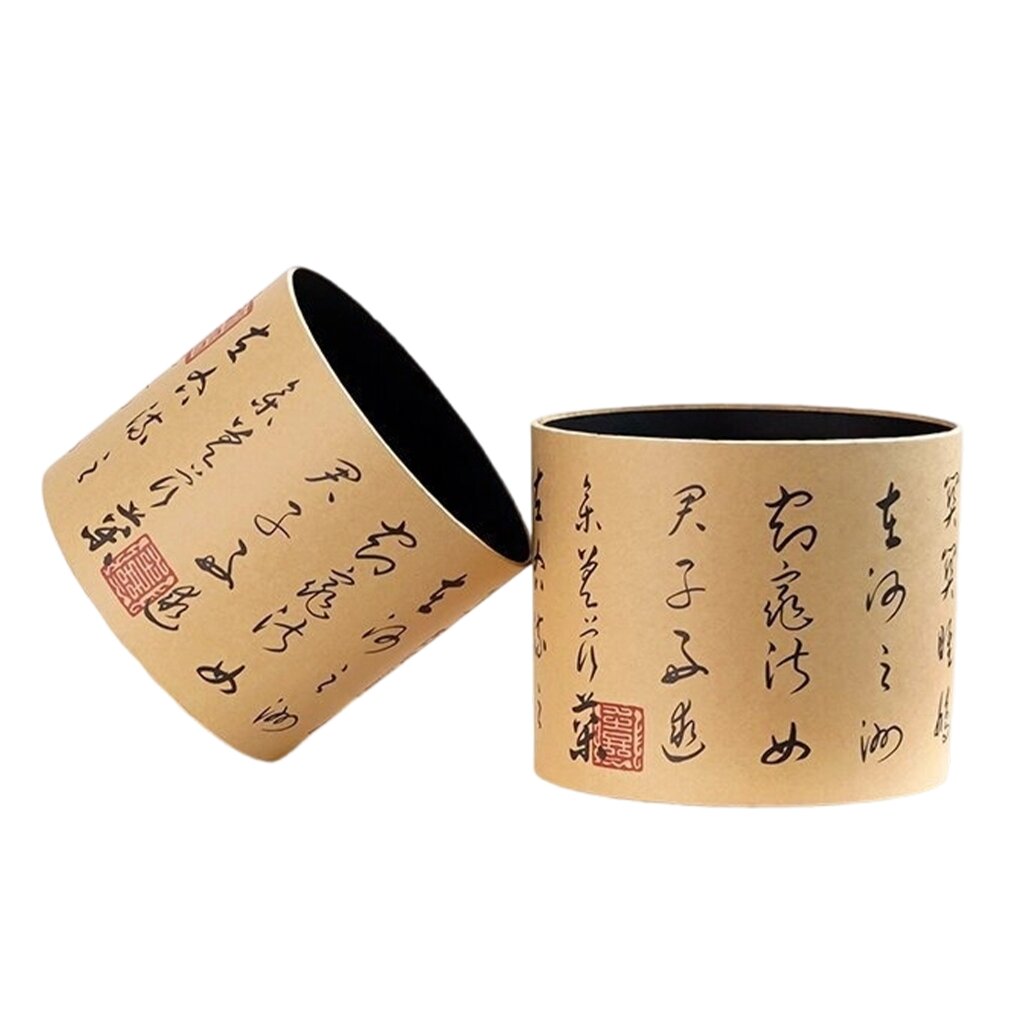 在河之洲
窈窕淑女
君子好逑
参差荇菜
左右流之
關關雎鳩
在河之洲
窈窕淑女
君子好逑
参差荇菜
左右流之